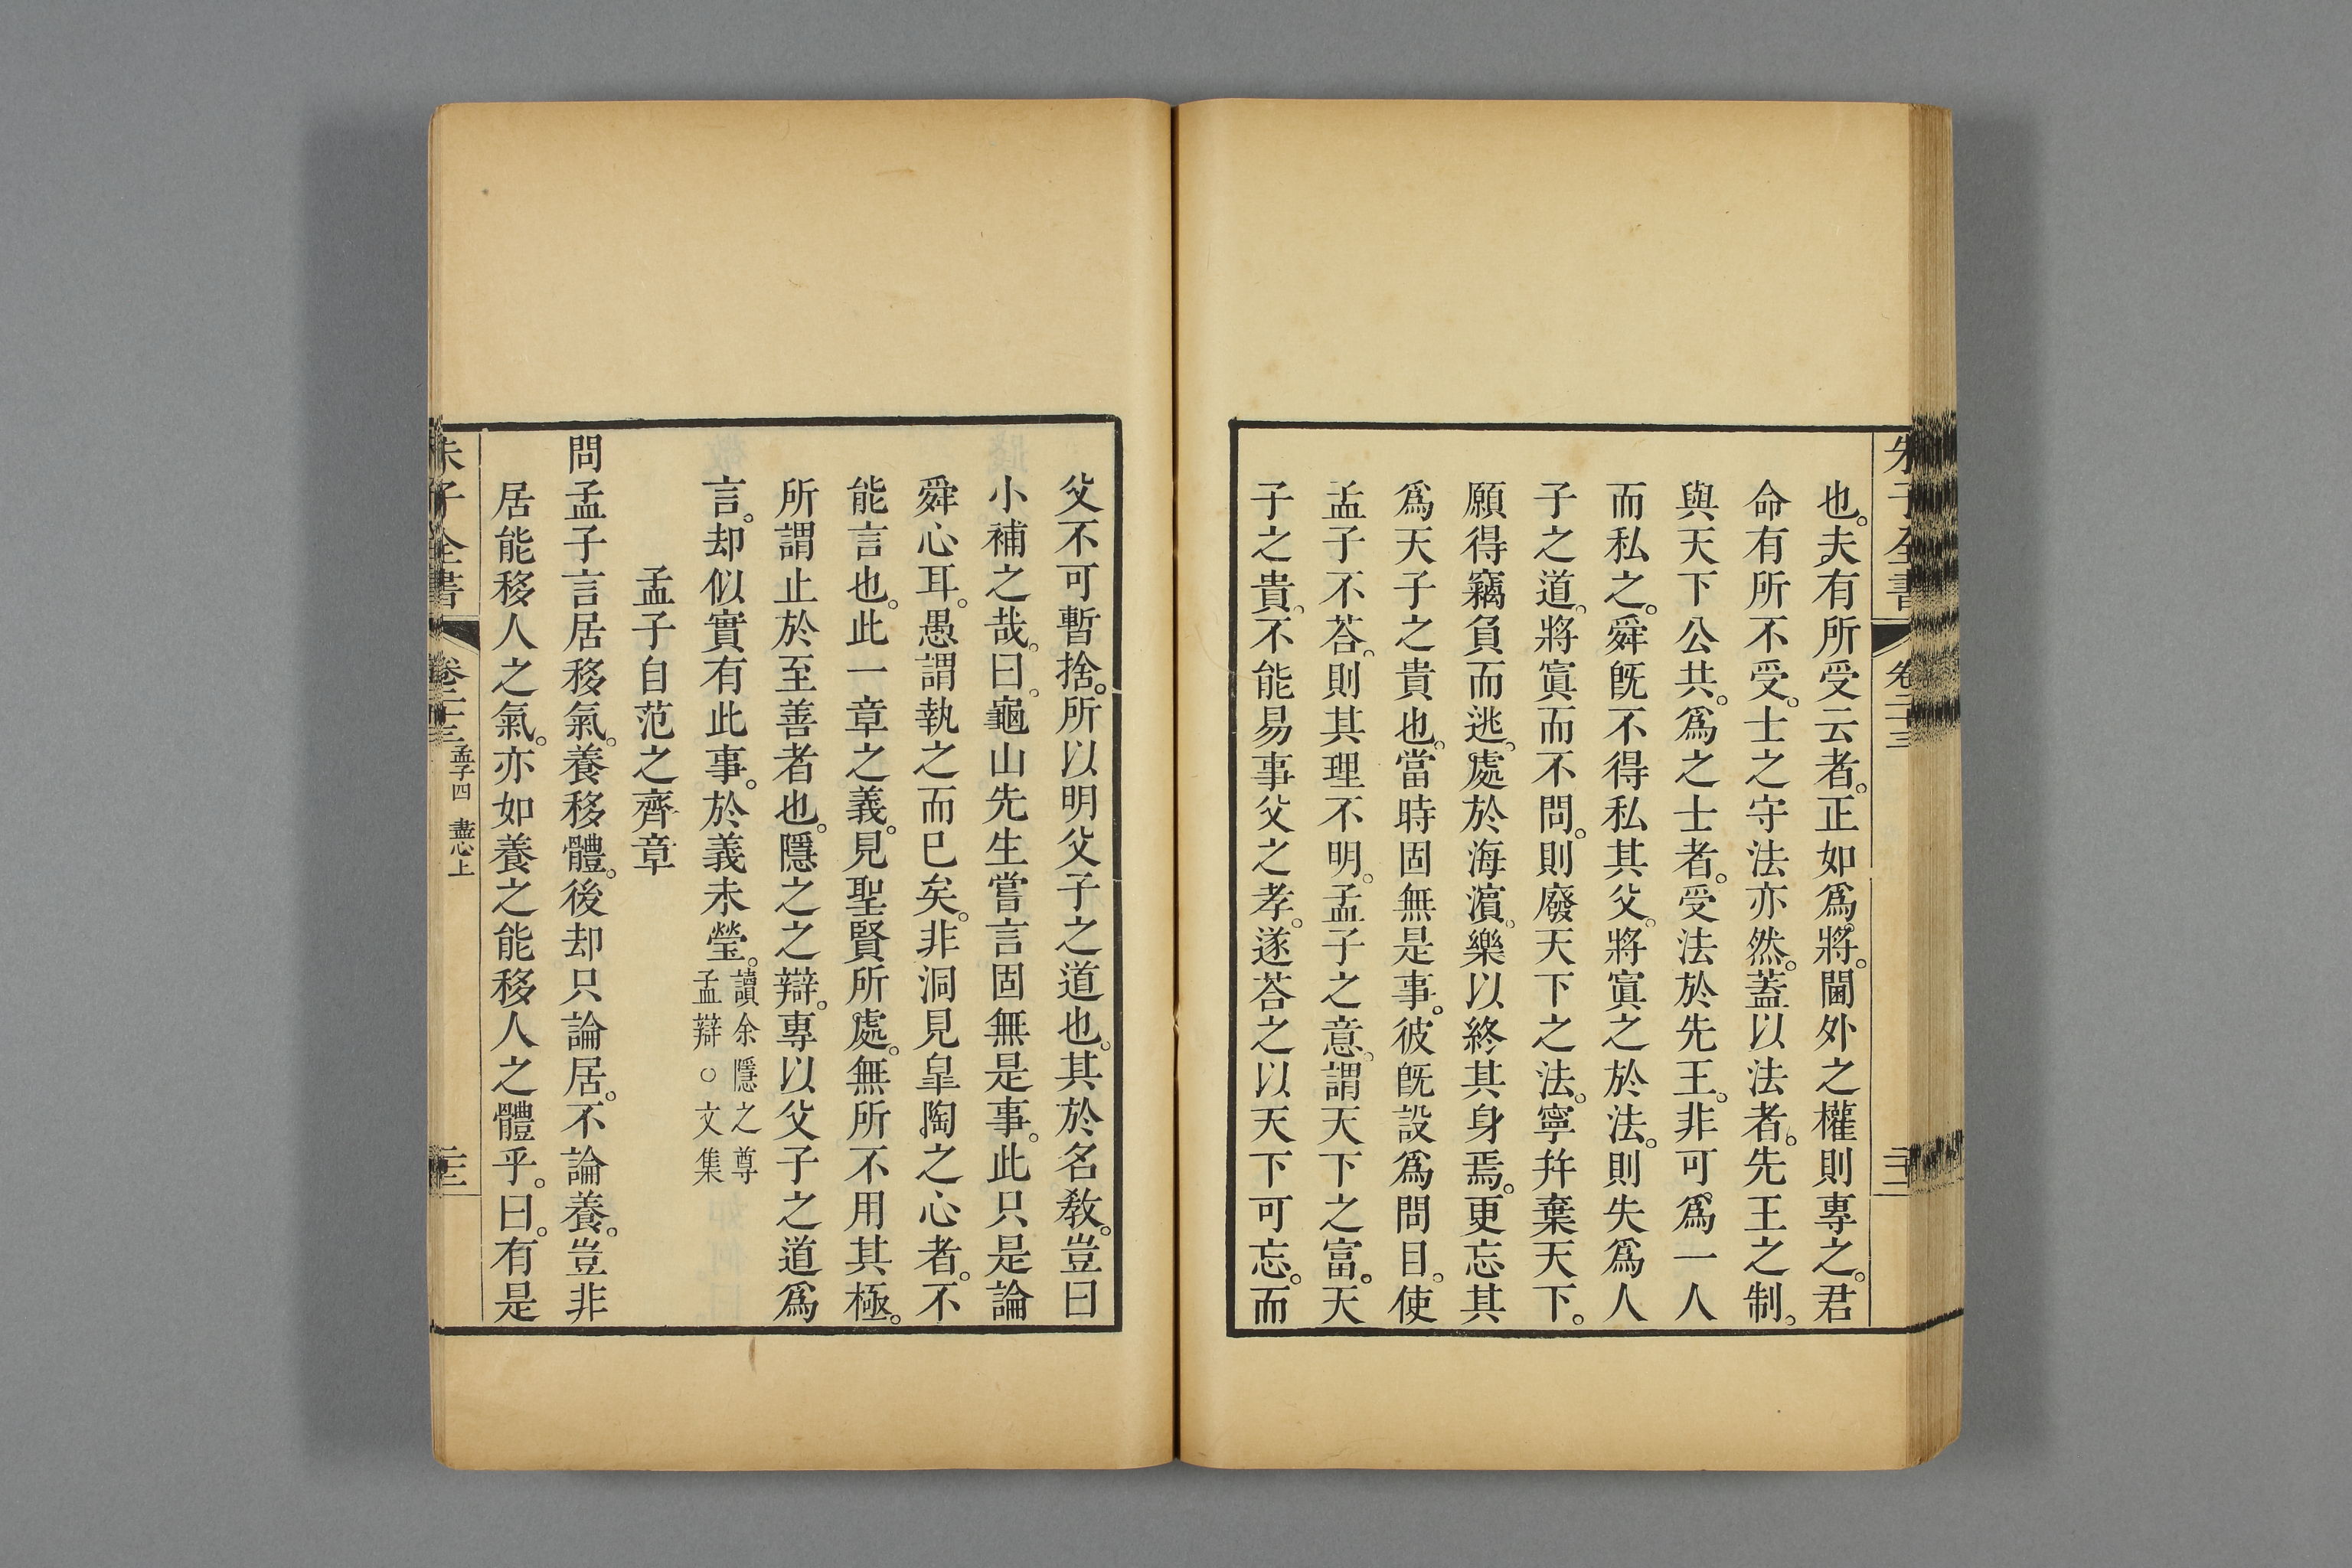 朱子全書 卷二十三
也。夫有所受云者。正如爲將。閫外之權則專之。君
命有所不受。士之守法亦然。蓋以法者。先王之制。
與天下公共。爲之士者。受法於先王。非可爲一人
而私之。舜旣不得私其父。將寘之於法。則失爲人
子之道。將寘而不問。則廢天下之法。寧幷棄天下。
願得竊負而逃。處於海濵。樂以終其身焉。更忘其
爲天子之貴也。當時固無是事。彼旣設爲問目。使
孟子不荅。則其理不明。孟子之意。謂天下之富。天
子之貴。不能易事父之孝。遂荅之以天下可忘。而
父不可暫捨。所以明父子之道也。其於名敎。豈曰
小補之哉。曰。龜山先生嘗言固無是事。此只是論
舜心耳。愚謂執之而已矣。非洞見臯陶之心者。不
能言也。此一章之義。見聖賢所處。無所不用其極。
所謂止於至善者也。隱之之辯。專以父子之道爲
言。却似實有此事。於義未瑩。讀余隱之尊
孟辯○文集
孟子自范之齊章
問孟子言居移氣。養移體。後却只論居。不論養。豈非
居能移人之氣。亦如養之能移人之體乎。曰。有是
朱子全書 卷二十三 孟子四 盡心上